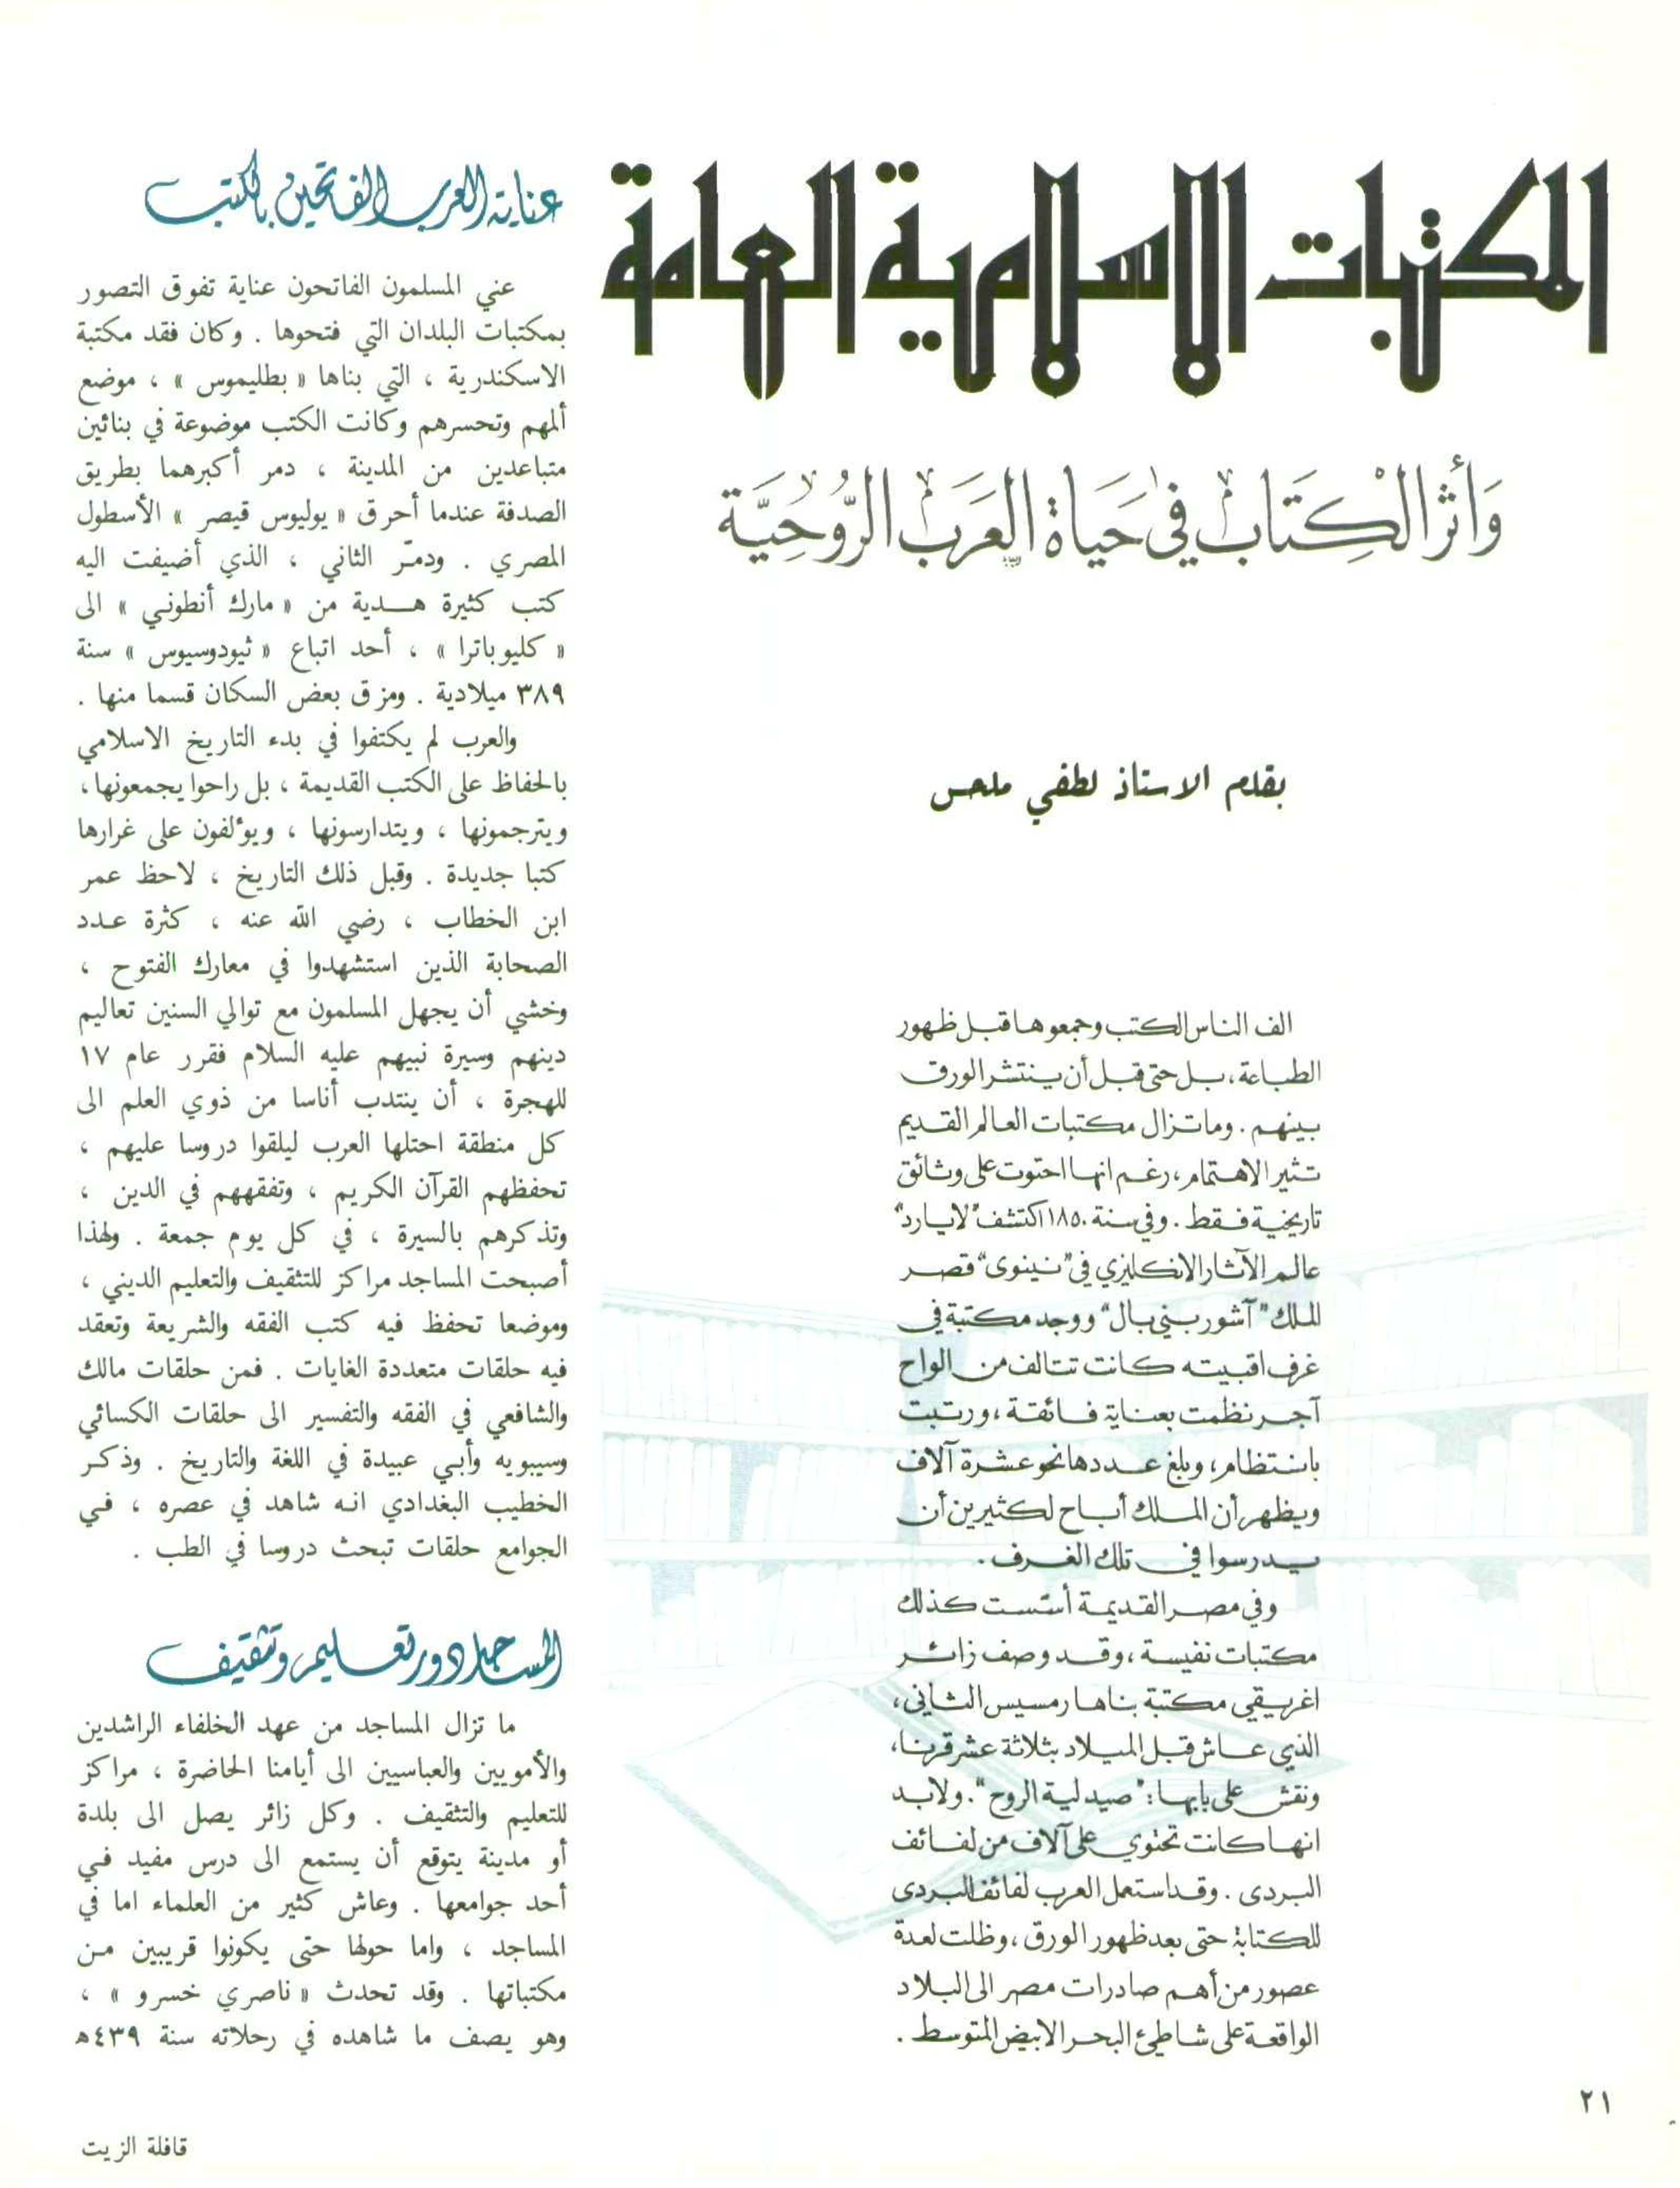 المكتبات الاسلامية العامة
وَأثر الْكِتَاب في حَيَاة العَرَب الرُّوحِيَّة
بقلم الاستاذ لطفي ملحس
الف الناس الكتب وجمعوها قبل ظهور
الطباعة، بل حتى قبل أن ينتشر الورق
بينهم . وما تزال مكتبات العالم القديم
تثير الاهتمام، رغم انها احتوت على وثائق
تاريخية فقط . وفي سنة ١٨٥٠ اكتشف "لايارد"
عالم الآثار الانكليزي في "نينوى" قصر
الملك "آشور بني بال" ووجد مكتبة في
غرف اقبيته كانت تتالف من الواح
آجر نظمت بعناية فائقة، ورتبت
بانتظام، وبلغ عددها نحو عشرة آلاف
ويظهر أن الملك أباح لكثيرين أن
يدرسوا في تلك الغرف .
وفي مصر القديمة أسّست كذلك
مكتبات نفيسة، وقد وصف زائر
اغريقي مكتبة بناها رمسيس الثاني،
الذي عاش قبل الميلاد بثلاثة عشر قرنا،
ونقش على بابها : "صيدلية الروح". ولابد
انها كانت تحتوي على آلاف من لفائف
البردى . وقد استعمل العرب لفائف البردى
للكتابة حتى بعد ظهور الورق، وظلت لعدة
عصور من أهم صادرات مصر الى البلاد
الواقعة على شاطئ البحر الابيض المتوسط .
عناية العرب الفاتحين بالكتب
عني المسلمون الفاتحون عناية تفوق التصور
بمكتبات البلدان التي فتحوها . وكان فقد مكتبة
الاسكندرية ، التي بناها « بطليموس » ، موضع
ألمهم وتحسرهم وكانت الكتب موضوعة في بنائين
متباعدين من المدينة ، دمر أكبرهما بطريق
الصدفة عندما أحرق « يوليوس قيصر » الأسطول
المصري . ودمّر الثاني ، الذي أضيفت اليه
كتب كثيرة هدية من « مارك أنطوني » الى
« كليوباترا » ، أحد اتباع « ثيودوسيوس » سنة
٣٨٩ ميلادية . ومزق بعض السكان قسما منها .
والعرب لم يكتفوا في بدء التاريخ الاسلامي
بالحفاظ على الكتب القديمة ، بل راحوا يجمعونها ،
ويترجمونها ، ويتدارسونها ، ويؤلفون على غرارها
كتبا جديدة . وقبل ذلك التاريخ ، لاحظ عمر
ابن الخطاب ، رضي الله عنه ، كثرة عدد
الصحابة الذين استشهدوا في معارك الفتوح ،
وخشي أن يجهل المسلمون مع توالي السنين تعاليم
دينهم وسيرة نبيهم عليه السلام فقرر عام ١٧
للهجرة ، أن ينتدب أناسا من ذوي العلم الى
كل منطقة احتلها العرب ليلقوا دروسا عليهم ،
تحفظهم القرآن الكريم ، وتفقههم في الدين ،
وتذكرهم بالسيرة ، في كل يوم جمعة . ولهذا
أصبحت المساجد مراكز للتثقيف والتعليم الديني ،
وموضعا تحفظ فيه كتب الفقه والشريعة وتعقد
فيه حلقات متعددة الغايات . فمن حلقات مالك
والشافعي في الفقه والتفسير الى حلقات الكسائي
وسيبويه وأبي عبيدة في اللغة والتاريخ . وذكر
الخطيب البغدادي انه شاهد في عصره ، في
الجوامع حلقات تبحث دروسا في الطب .
المساجد دور تعليم وتثقيف
ما تزال المساجد من عهد الخلفاء الراشدين
والأمويين والعباسيين الى أيامنا الحاضرة ، مراكز
للتعليم والتثقيف . وكل زائر يصل الى بلدة
أو مدينة يتوقع أن يستمع الى درس مفيد في
أحد جوامعها . وعاش كثير من العلماء اما في
المساجد ، واما حولها حتى يكونوا قريبين من
مكتباتها . وقد تحدث « ناصري خسرو » ،
وهو يصف ما شاهده في رحلاته سنة ٤٣٩ه
٢١
قافلة الزيت